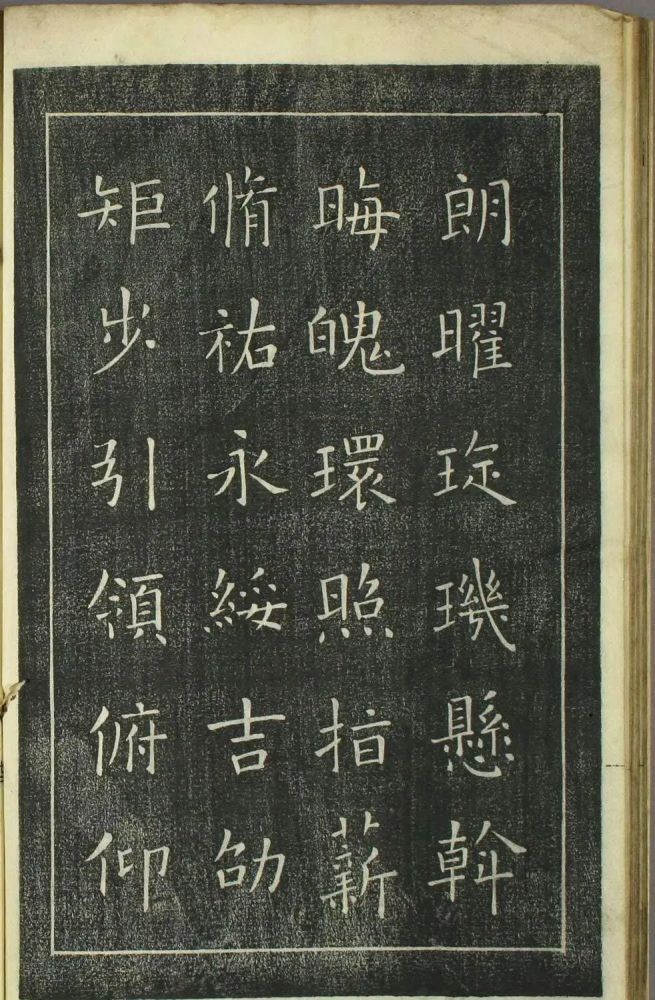 朗曜琁璣懸斡
晦魄環照指薪
脩祐永綏吉劭
矩步引領俯仰